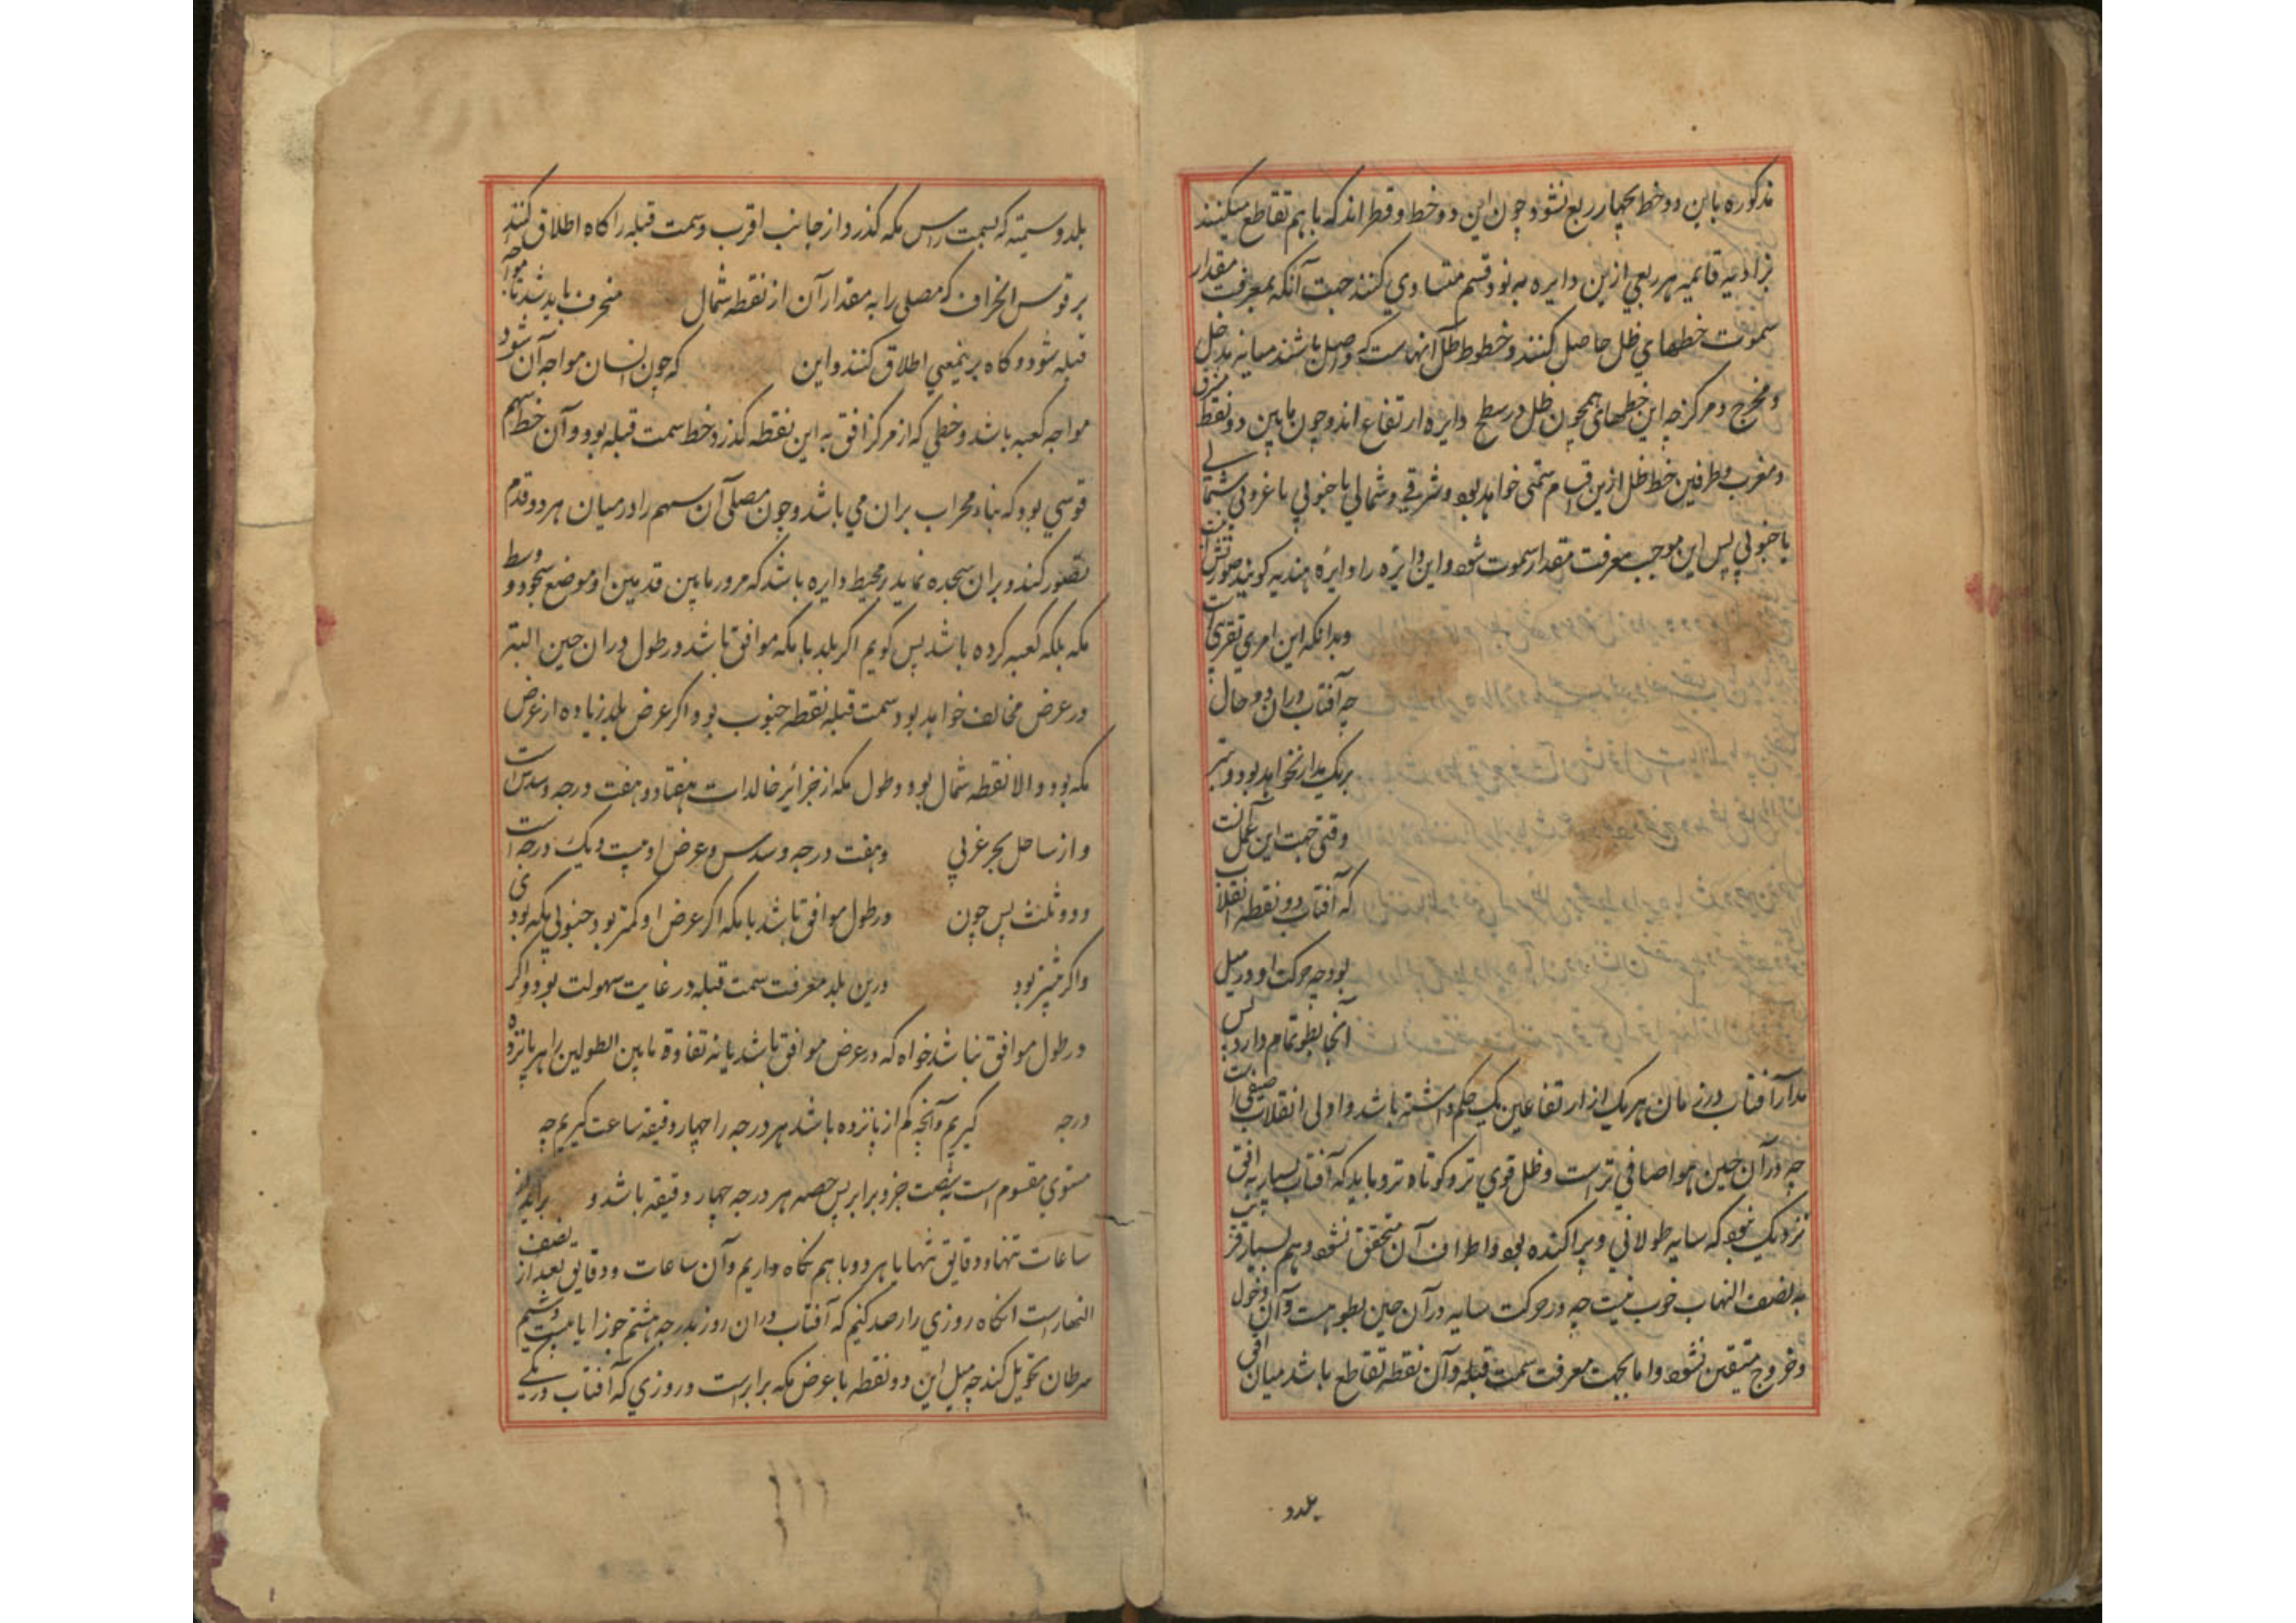 مذکوره باین دو خط بچهار ربع شود و چون این دو خط دو قطر اند که با هم تقاطع میکنند
بزاویه قایمه هر ربعی ازین دایره به نود قسم متساوی کنند جهت آنکه بمعرفت مقدار
سموت خطهای ظل حاصل کنند و خطوط ظل آنهاست که واصل باشند میانه مدخل
و مخرج و مرکز چه این خطهای همچون ظل در سطح دایره ارتفاع اند و چون مابین دو نقطه مشرق
و مغرب و طرفین خط ظل ازین اقسام سمتی خواهد بود شرقی و شمالی یا جنوبی یا غربی شمالی
یا جنوبی پس این موجب معرفت مقدار سموت شود و این دایره را دایره هندیه کویند صورتش
و بدانکه این امری تقریبی است
چه آفتاب در ان دو حال
بر یک مدار نخواهد بود و بهتر
وقتی جهت این عمل آنست
که آفتاب در نقطه انقلاب
بود چه حرکت او در میل
آنجا بطو تمام دارد پس
مدار آفتاب در زمان هر یک از ارتفاعین یک حکم داشته باشد و اولی انقلاب صیفی است
چه در آن حین هوا صافی تر است و ظل قوی تر و کوتاه تر و باید که آفتاب بسیار به افق
نزدیک نبود که سایه طولانی و پراکنده بود و اطراف آن متحقق نشود و هم بسیار قریب
به نصف النهار خوب نیست چه در حرکت سایه در آن حین بطو هست و آن دخول
و خروج متیقن نشود و اما بجهت معرفت سمت قبله و آن نقطه تقاطع باشد میان افق
بلد و
بلد و سمتیه که بسمت راس مکه کذرد از جانب اقرب و سمت قبله را کاه اطلاق کنند
بر قوس انحراف که مصلی را به مقدار آن از نقطه شمال منحرف باید شد تا مواجه
قبله شود و کاه بر نیمعنی اطلاق کنند و این که چون انسان مواجه آن شود
مواجه کعبه باشد و خطی که از مرکز افق به این نقطه کذرد خط سمت قبله بود و آن خط سهم
قوسی بود که بناء محراب بران می باشد و چون مصلی آن سهم را در میان هر دو قدم
تصور کند و بران سجده نماید بر محیط دایره باشد که مرور مابین قدمین او و موضع سجود و وسط
مکه بلکه کعبه کرده باشد پس کویم اکر بلد با مکه موافق باشد در طول در ان حین البته
در عرض مخالف خواهد بود سمت قبله نقطه جنوب بود اکر عرض بلد زیاده از عرض
مکه بود و الا نقطه شمال بود و طول مکه از جزائر خالدات هفتاد و هفت درجه و سدس است
و از ساحل بحر غربی و هفت درجه و سدس و عرض او بیست و یک درجه است
و دو ثلث پس چون در طول موافق باشد با مکه اکر عرض او کمتر بود جنوبی مکه بود
و اکر بیشتر بود درین بلد معرفت سمت قبله در غایت سهولت بود و اکر
در طول موافق نباشد خواه که در عرض موافق باشد یا نه تفاوه مابین الطولین را هر پانزده
درجه کیریم و آنچه کم از پانزده باشد هر درجه را چهار دقیقه ساعت کیریم چه
مستوی مقسوم است به شصت جزو برابر پس حصه هر درجه چهار دقیقه باشد و
ساعات تنها و دقایق تنها یا هر دو با هم نکاه داریم و آن ساعات و دقایق بعد از نصف
النهار است انکاه روزی را رصد کنیم که آفتاب در ان روز بدرجه هشتم جوزا یا بیست و سیم
سرطان تحویل کند چه میل این دو نقطه با عرض مکه برابر است و روزی که آفتاب در یکی